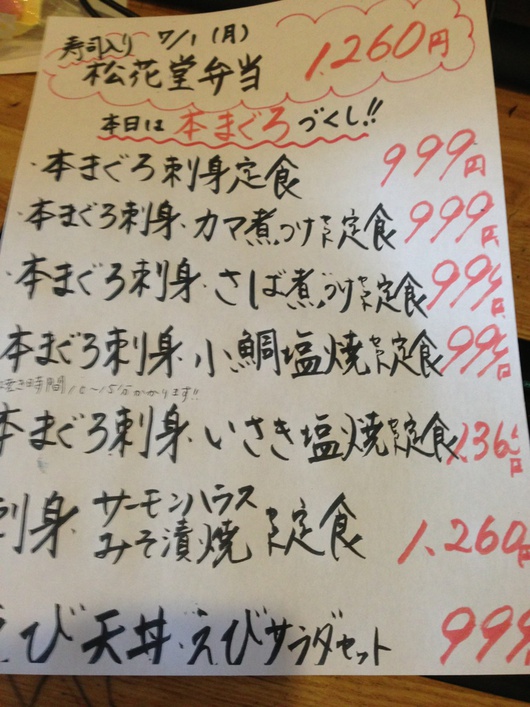 寿司入り 7/1 (月)
松花堂弁当 1,260円
本日は本まぐろづくし!!
・本まぐろ刺身定食 999円
・本まぐろ刺身・カマ煮つけセット定食 999円
・本まぐろ刺身・さば煮つけセット定食 999円
本まぐろ刺身・小鯛塩焼セット定食 999円
焼き時間10〜15分かかります!!
本まぐろ刺身・いさき塩焼セット定食 1,36
刺身・サーモンハラスみそ漬焼セット定食 1,260円
えび天丼・えびサラダセット 999